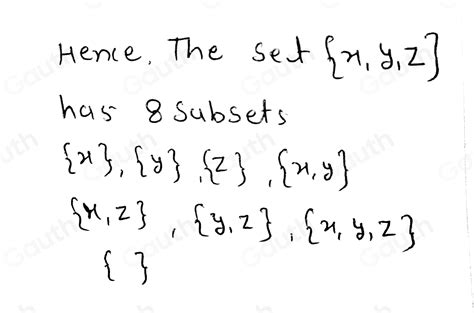 Hence, The set {x, y, z}
has 8 subsets
{x}, {y}, {z}, {x, y}
{x, z}, {y, z}, {x, y, z}
{ }